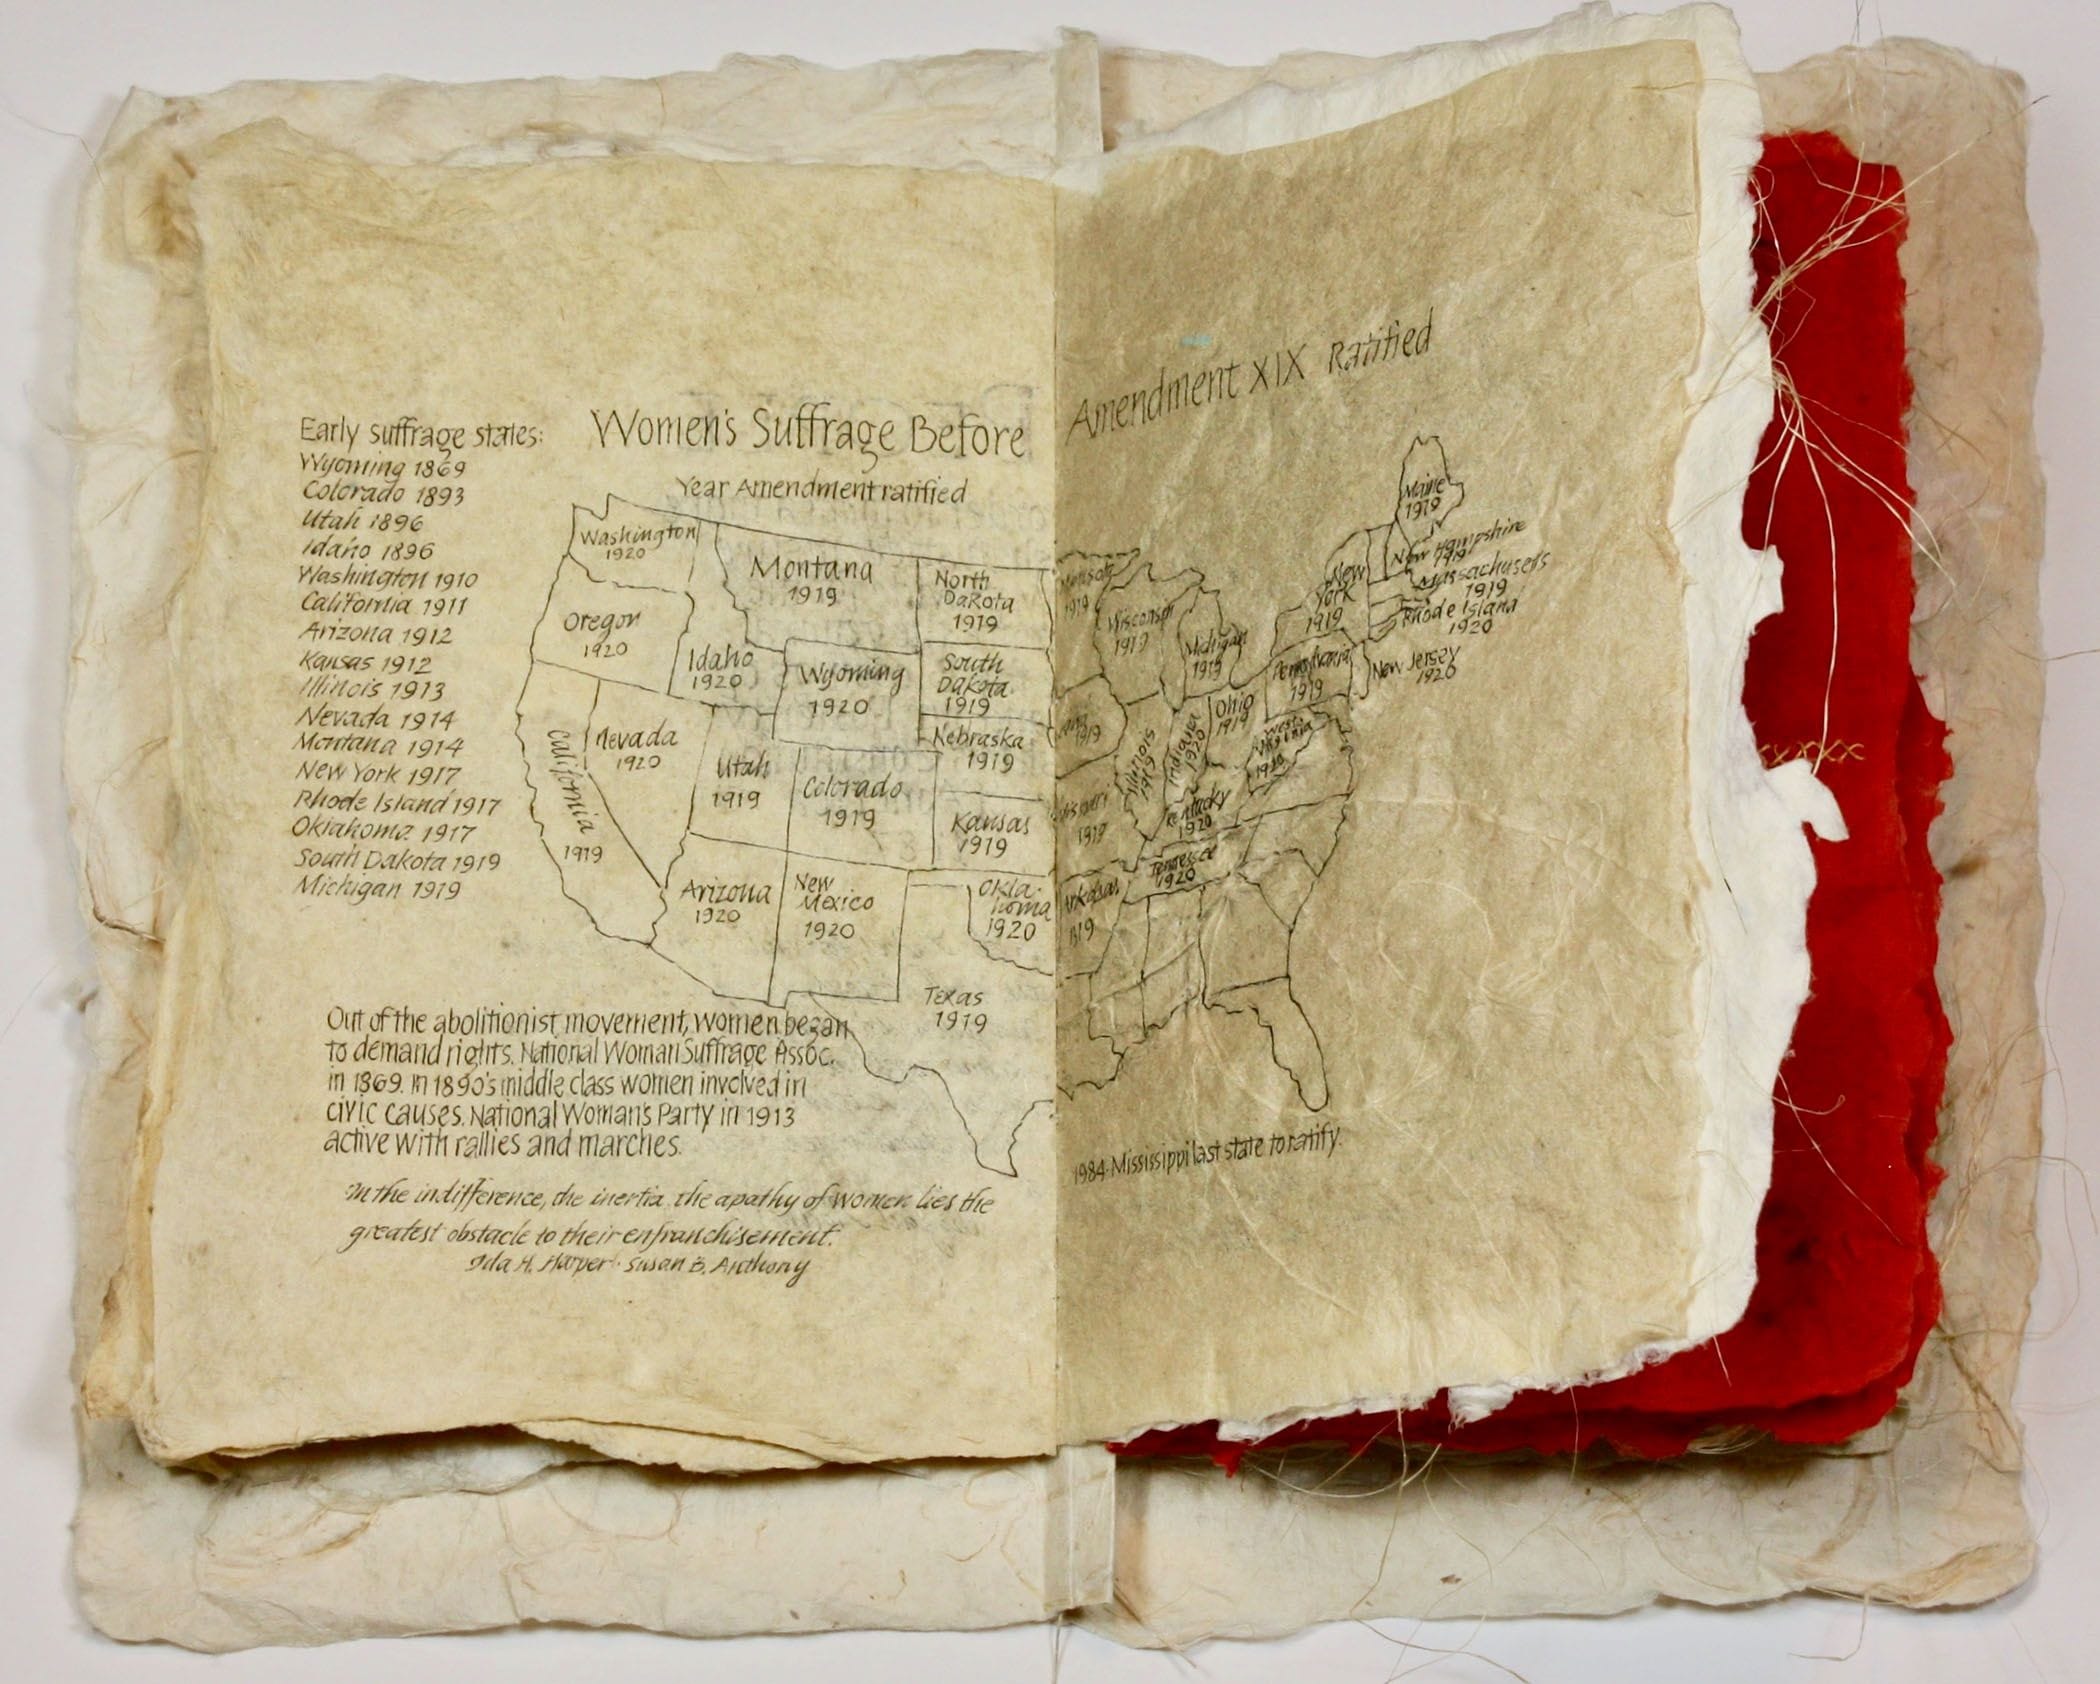 Women's Suffrage Before Amendment XIX Ratified
Year Amendment ratified
Early suffrage states:
Wyoming 1869
Colorado 1893
Utah 1896
Idaho 1896
Washington 1910
California 1911
Arizona 1912
Kansas 1912
Illinois 1913
Nevada 1914
Montana 1914
New York 1917
Rhode Island 1917
Oklahoma 1917
South Dakota 1919
Michigan 1919
Washington
1920
Oregon
1920
California
1919
Nevada
1920
Idaho
1920
Montana
1919
Wyoming
1920
Utah
1919
Colorado
1919
Arizona
1920
New
Mexico
1920
North
Dakota
1919
South
Dakota
1919
Nebraska
1919
Kansas
1919
Okla-
homa
1920
Texas
1919
1919
Wisconsin
1919
Michigan
1919
1919
Illinois
1919
Indiana
1920
Ohio
1919
1919
Kentucky
1920
West
Virginia
1920
Tennessee
1920
Arkansas
1919
Pennsylvania
1919
New
York
1919
Maine
1919
New Hampshire
1919
Massachusetts
1919
Rhode Island
1920
New Jersey
1920
Out of the abolitionist movement, women began
to demand rights. National Woman Suffrage Assoc.
in 1869. In 1890's middle class women involved in
civic causes. National Woman's Party in 1913
active with rallies and marches.
In the indifference, the inertia, the apathy of women lies the
greatest obstacle to their enfranchisement.
Ida H. Harper · Susan B. Anthony
1984·Mississippi last state to ratify.